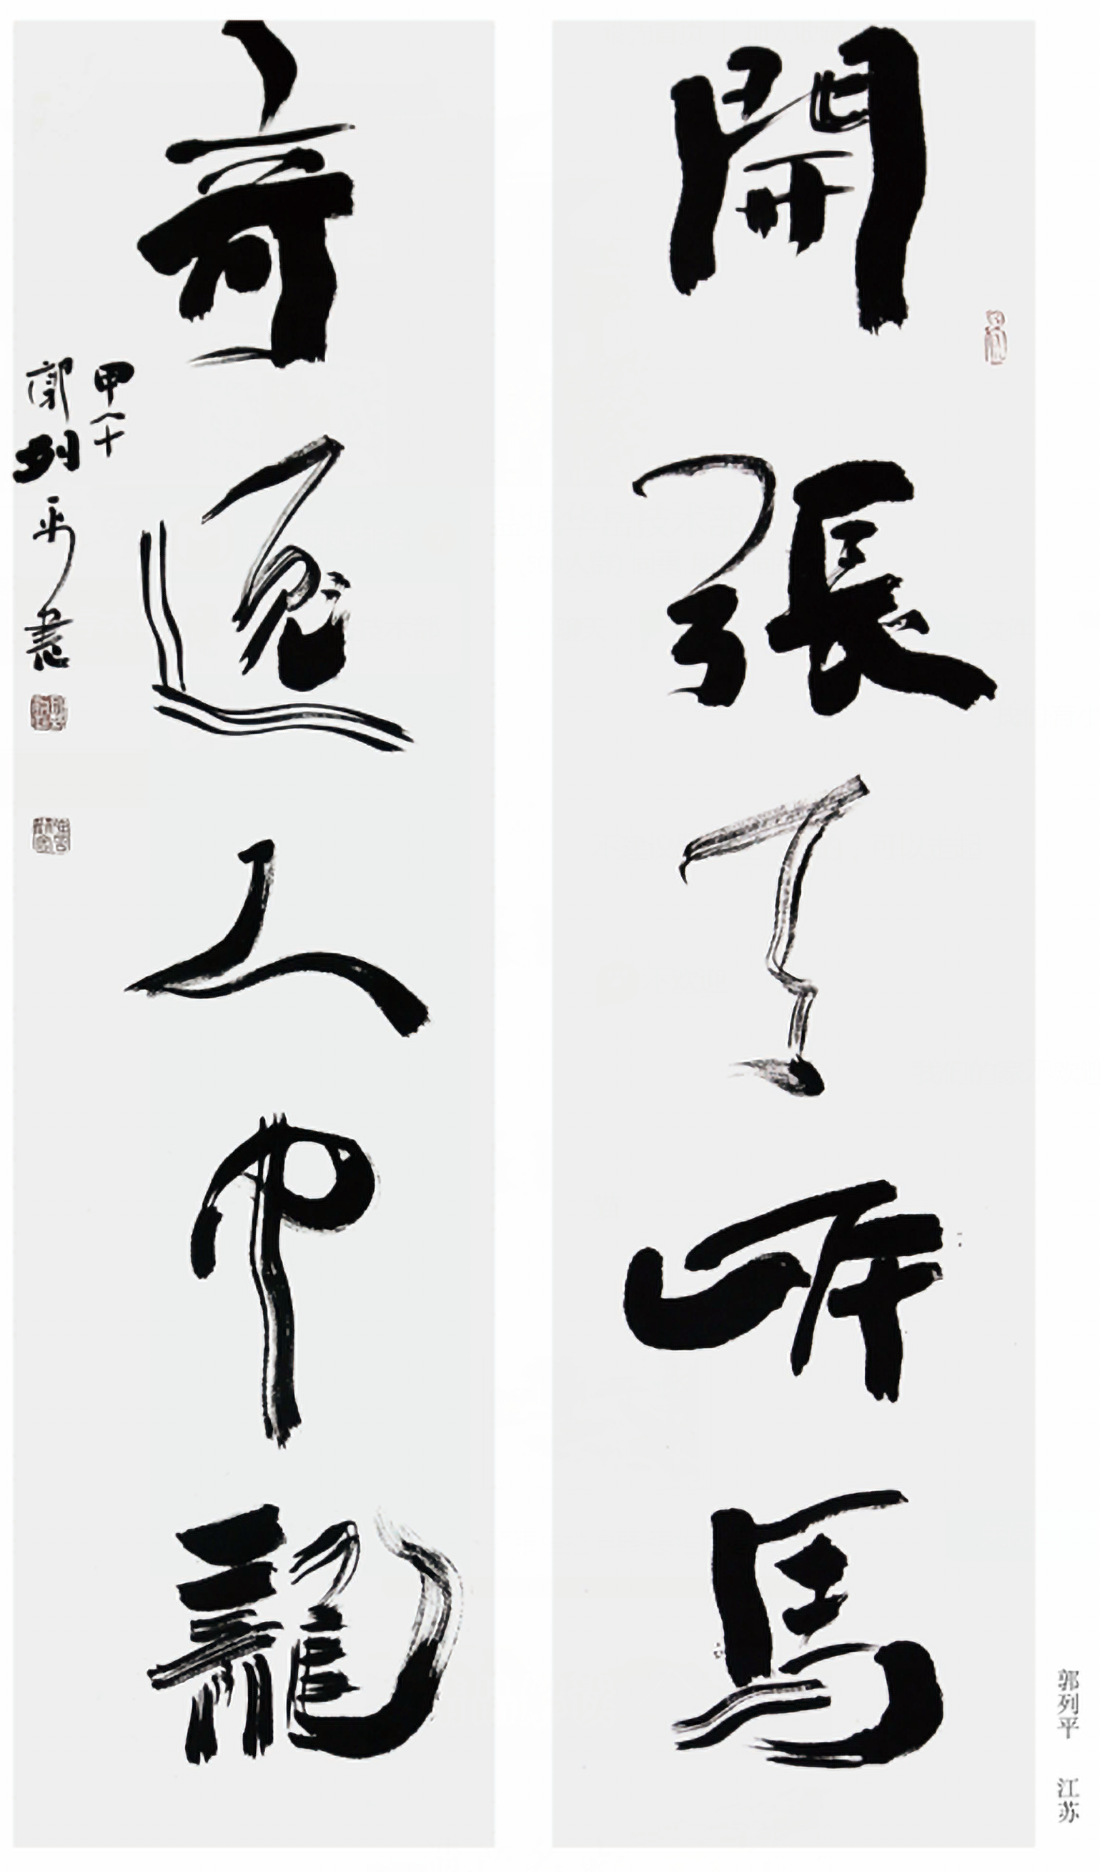 開張天岸馬
奇逸人中龍
甲午
郭列平書
郭列平 江苏